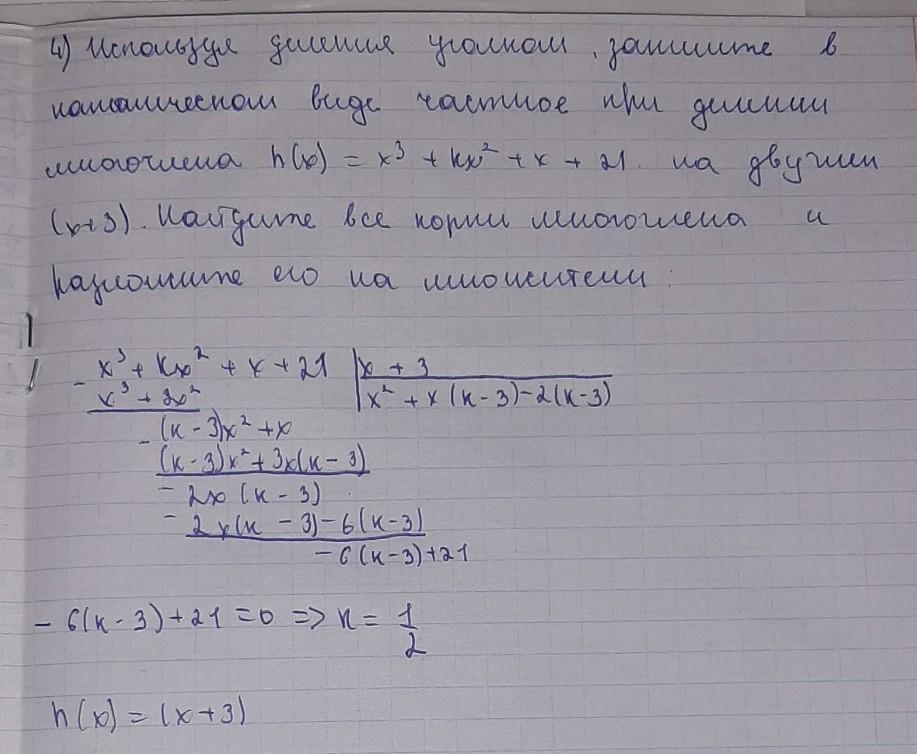 4) Используя деления уголком, запишите в
каноническом виде частное при делении
многочлена h(x) = x³ + kx² + x + 21 на двучлен
(x+3). Найдите все корни многочлена и
разложите его на множители:
- x³ + kx² + x + 21 | x + 3
x³ + 3x² | x² + x(k-3) - 2(k-3)
- (k-3)x² + x
(k-3)x² + 3x(k-3)
- 2x(k-3)
- 2x(k-3) - 6(k-3)
- 6(k-3) + 21
- 6(k-3) + 21 = 0 => k = 1/2
h(x) = (x+3)